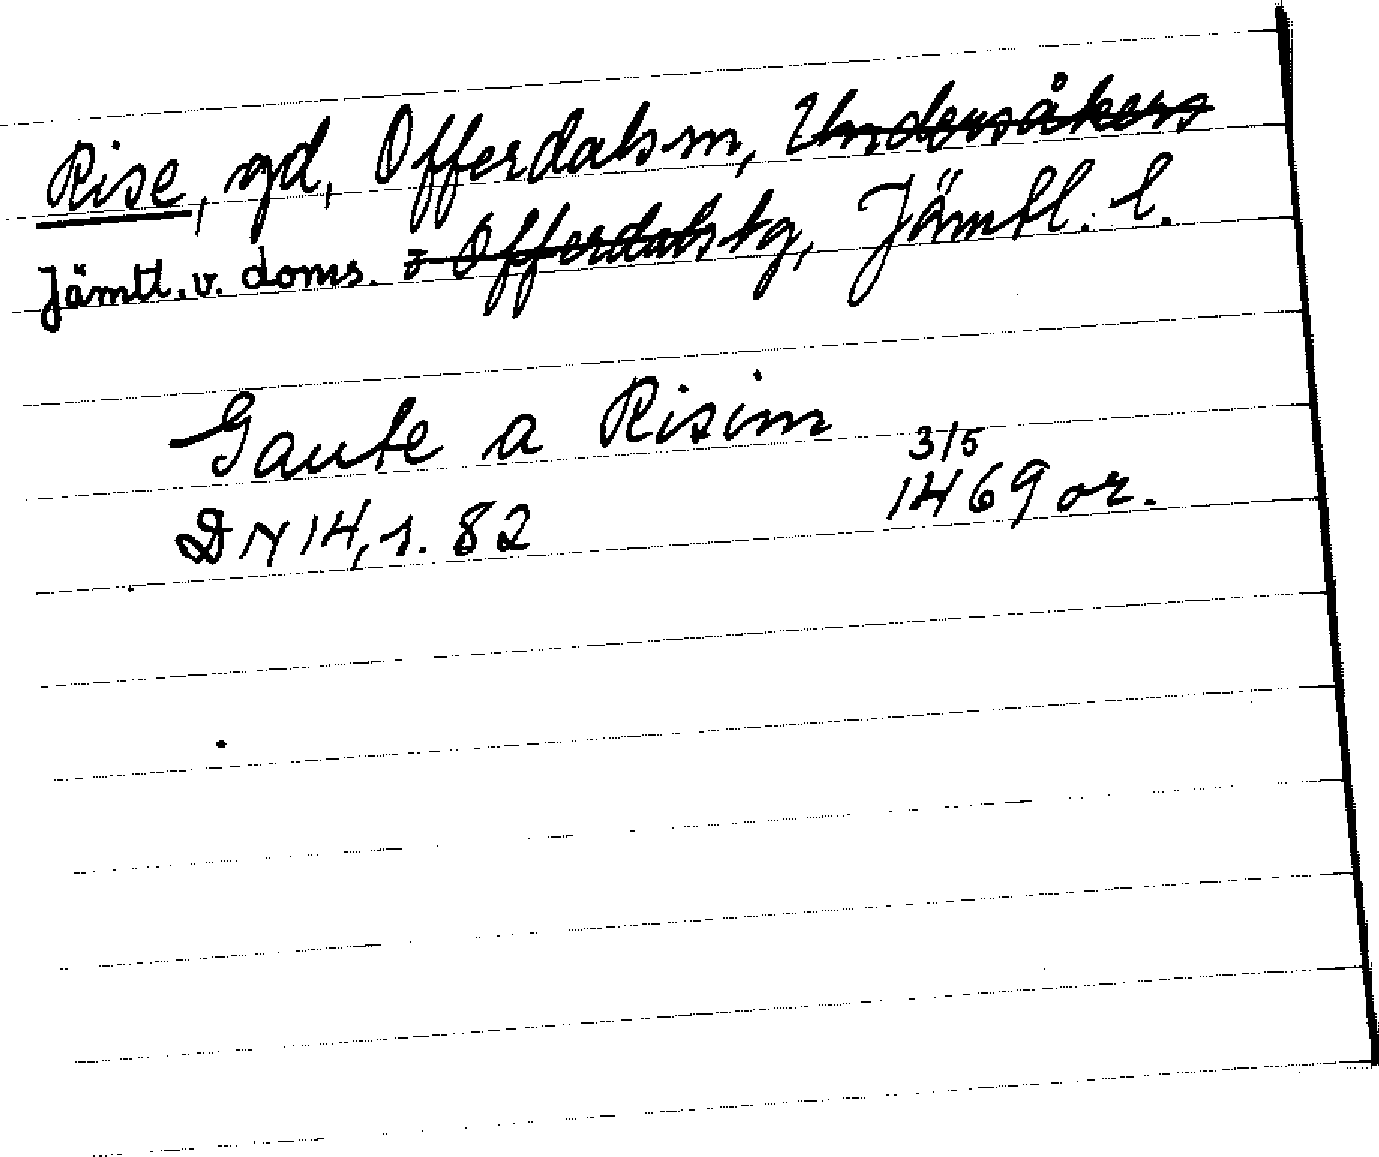 Rise, gd, Offerdals sn, Undersåkers
Jämtl. v. doms. o Offerdals tg, Jämtl. l.
Gaute a Risim
3/5
DN 14, s. 82 1469 or.